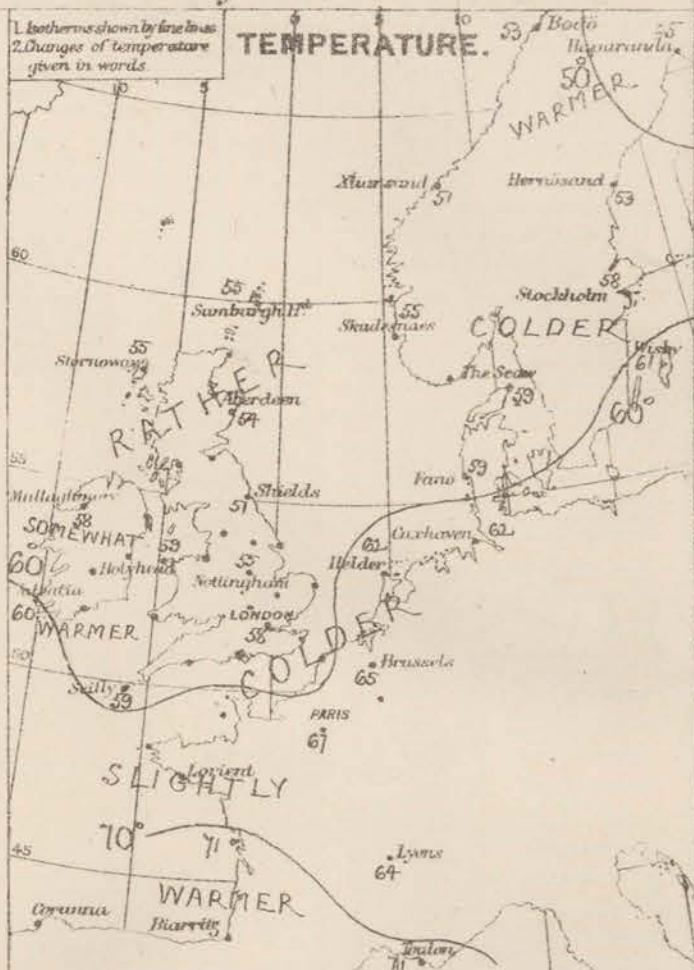 1. Isotherms shown by fine lines
2. Changes of temperature
given in words
TEMPERATURE.
10
5
0
5
10
53
Bodö
Haparanda
55
50°
WARMER
Xtiansund
51
Hernösand
53
60
55
Sumburgh Hd.
55
Skudesnaes
58
Stockholm
COLDER
Wisby
61
Stornoway
55
RATHER
Aberdeen
54
The Scaw
59
60°
55
Mullaghmore
58
Shields
51
Fano
59
SOMEWHAT
59
Holyhead
Nottingham
55
62
Helder
Cuxhaven
62
60
Valentia
60
WARMER
LONDON
58
COLDER
50
Scilly
59
Brussels
65
PARIS
67
Lorient
SLIGHTLY
70°
71
45
Lyons
64
WARMER
Corunna
Biarritz
Toulon
71